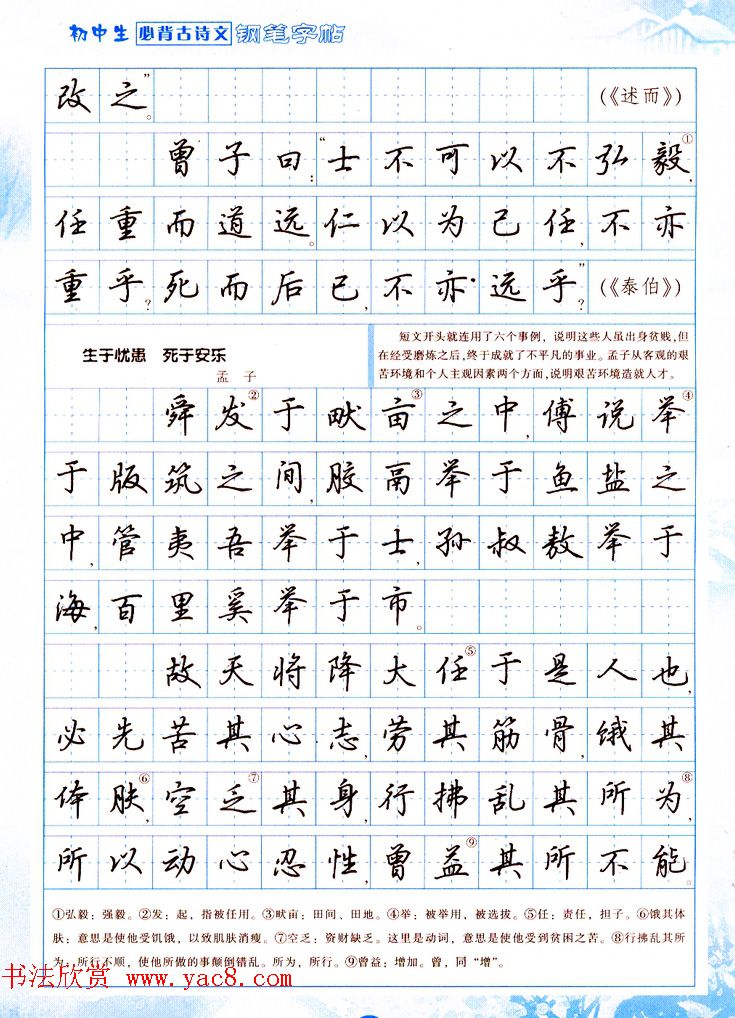 初中生 必背古诗文 钢笔字帖
改之”。 (《述而》)
曾子曰：“士不可以不弘毅①，
任重而道远。仁以为己任，不亦
重乎？死而后已，不亦远乎？” (《泰伯》)
生于忧患 死于安乐
孟 子
短文开头就连用了六个事例，说明这些人虽出身贫贱，但
在经受磨炼之后，终于成就了不平凡的事业。孟子从客观的艰
苦环境和个人主观因素两个方面，说明艰苦环境造就人才。
舜发②于畎亩③之中，傅说举④
于版筑之间，胶鬲举于鱼盐之
中，管夷吾举于士，孙叔敖举于
海，百里奚举于市。
故天将降大任⑤于是人也，
必先苦其心志，劳其筋骨，饿其
体肤⑥，空乏⑦其身，行拂乱其所为⑧，
所以动心忍性，曾益⑨其所不能。
①弘毅：强毅。②发：起，指被任用。③畎亩：田间、田地。④举：被举用，被选拔。⑤任：责任，担子。⑥饿其体
肤：意思是使他受饥饿，以致肌肤消瘦。⑦空乏：资财缺乏。这里是动词，意思是使他受到贫困之苦。⑧行拂乱其所
为：所行不顺，使他所做的事颠倒错乱。所为，所行。⑨曾益：增加。曾，同“增”。
书法欣赏 www.yac8.com